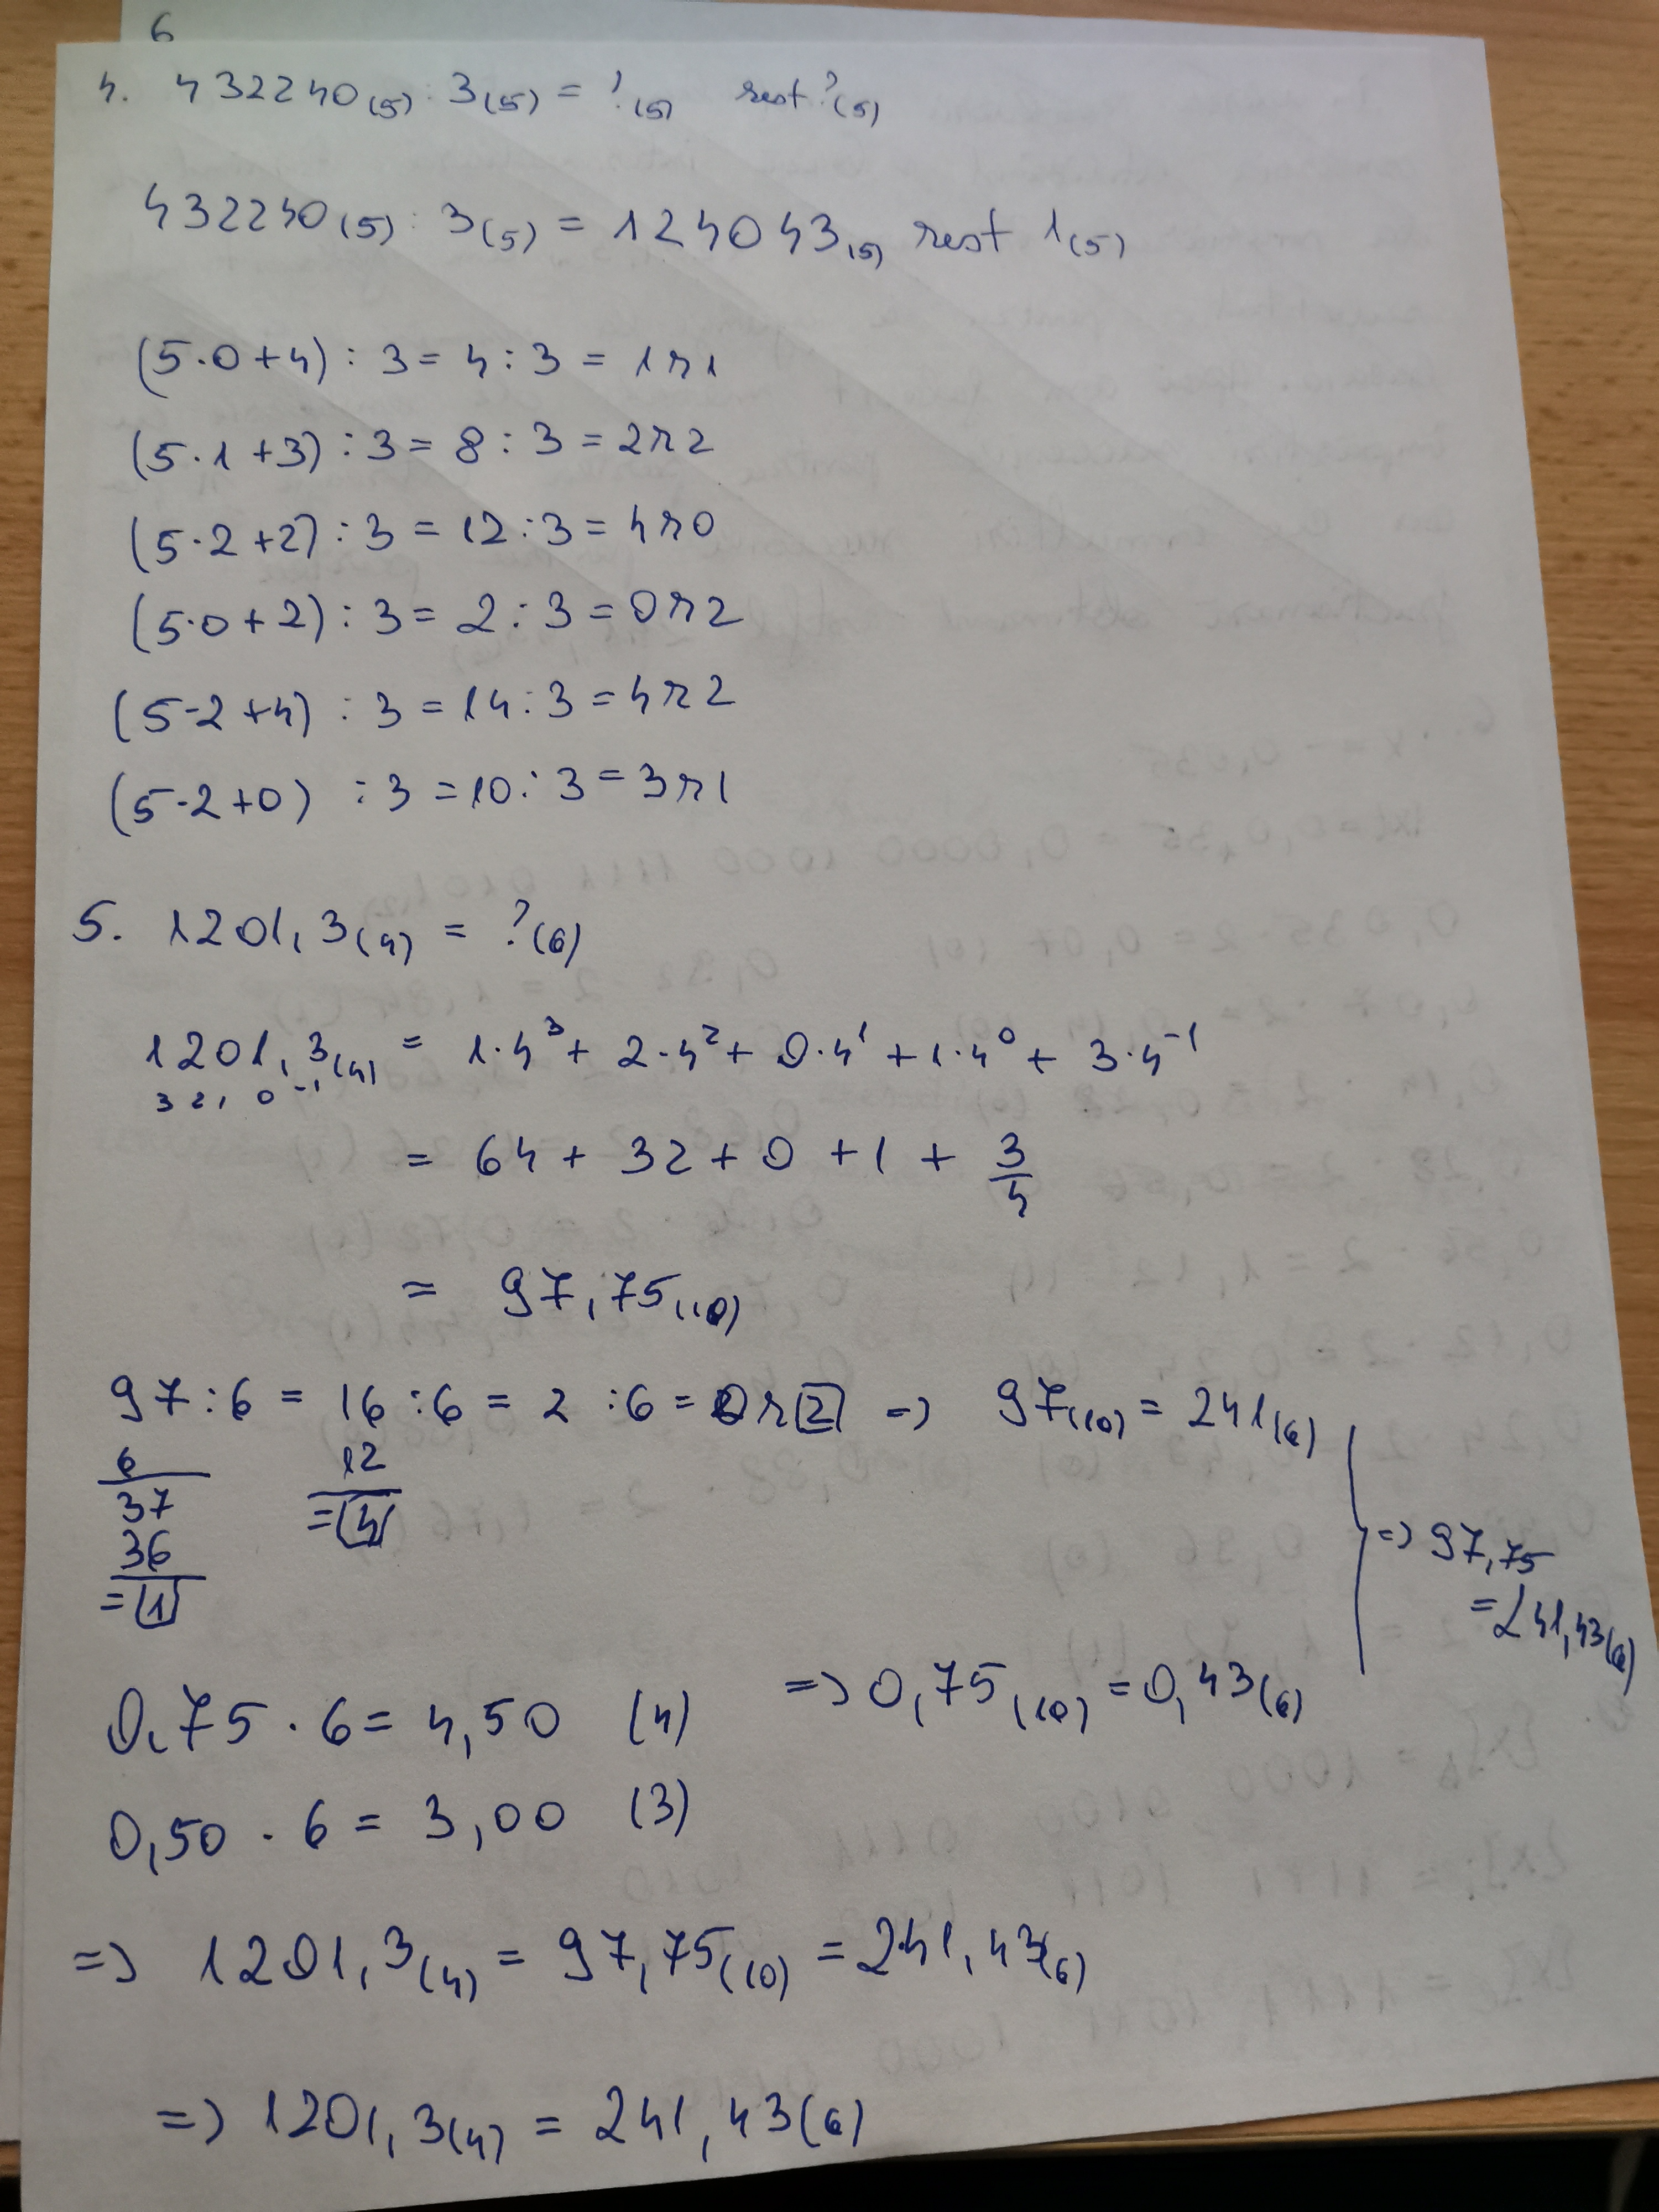 6
4. 432240(5) : 3(5) = ?(5) rest ?(5)
432240(5) : 3(5) = 124043(5) rest 1(5)
(5·0+4) : 3 = 4 : 3 = 1 r 1
(5·1+3) : 3 = 8 : 3 = 2 r 2
(5·2+2) : 3 = 12 : 3 = 4 r 0
(5·0+2) : 3 = 2 : 3 = 0 r 2
(5·2+4) : 3 = 14 : 3 = 4 r 2
(5·2+0) : 3 = 10 : 3 = 3 r 1
5. 1201,3(4) = ?(6)
1201,3(4) = 1·4³ + 2·4² + 0·4¹ + 1·4⁰ + 3·4⁻¹
3 2 1 0 -1
= 64 + 32 + 0 + 1 + 3/4
= 97,75(10)
97 : 6 = 16 : 6 = 2 : 6 = 0 r 2 => 97(10) = 241(6)
6 12
37 = 4
36
= 1
=> 97,75
= 241,43(6)
0,75 · 6 = 4,50 (4) => 0,75(10) = 0,43(6)
0,50 · 6 = 3,00 (3)
=> 1201,3(4) = 97,75(10) = 241,43(6)
=> 1201,3(4) = 241,43(6)